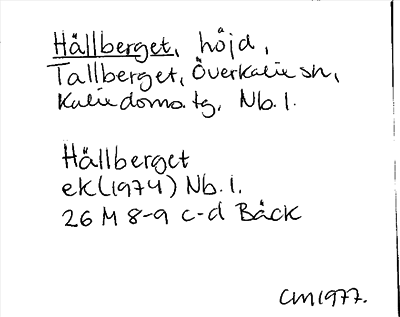 Hällberget, höjd,
Tallberget, Överkalix sn,
Kalix doms. tg, Nb. l.
Hällberget
ek (1974) Nb. l.
26 M 8-9 c-d Bäck
CM 1977.